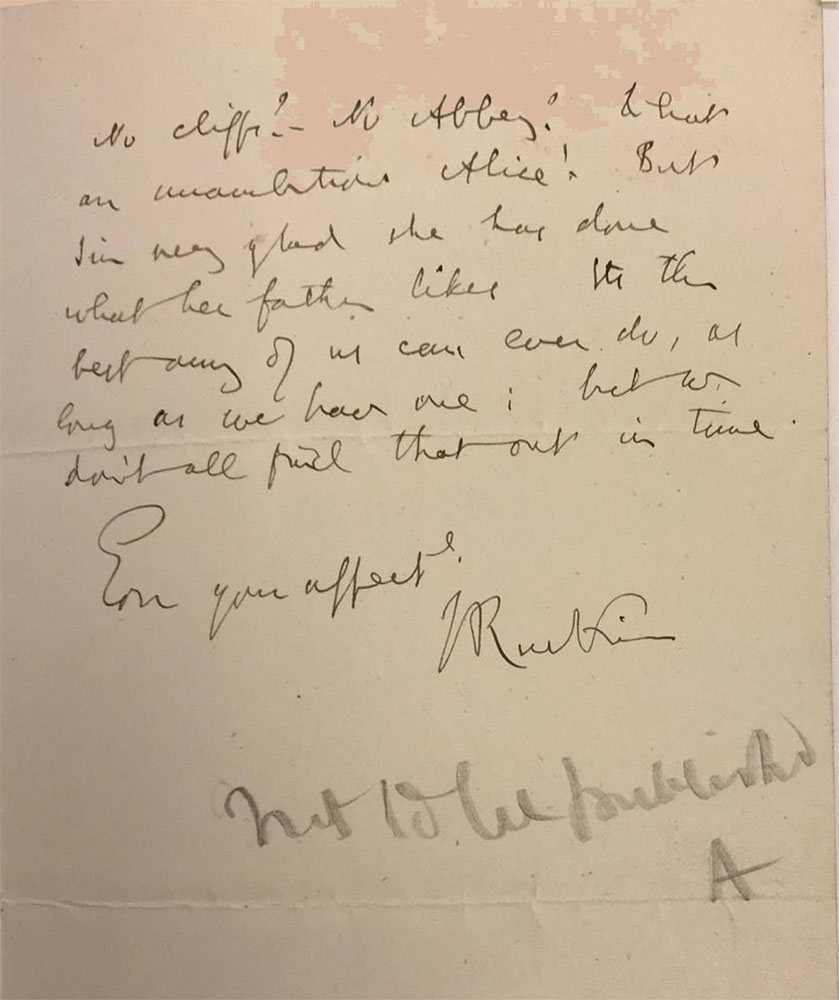 No cliffs? – No Abbey? What
an unambitious Alice! But
I'm very glad she has done
what her father likes Its the
best any of us can ever do, as
long as we have one; but we
don't all find that out in time.
Ever your affect<sup>e</sup>.
JRuskin
Not to be published
A